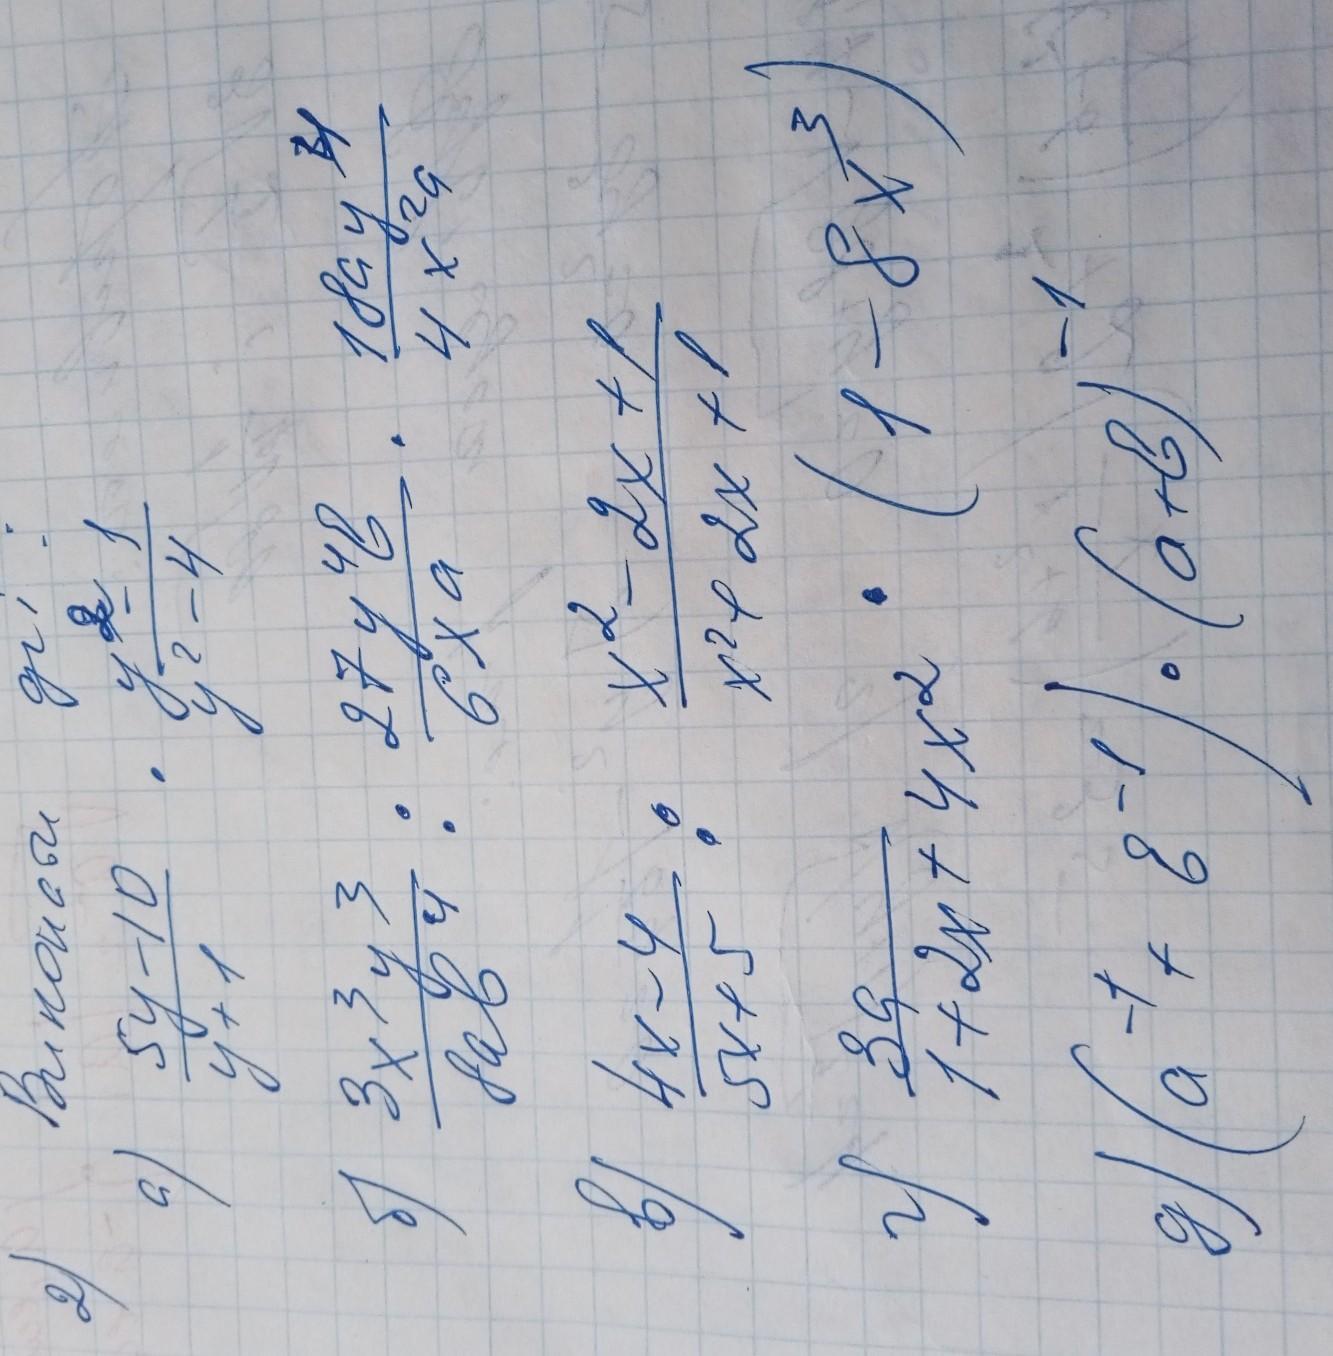 2) Виконати дії:
а) \frac{5y-10}{y+1} · \frac{y^2-1}{y^2-4}
б) \frac{3x^3y^3}{8ab^4} : \frac{27y^4b}{6xa} · \frac{18ay^4}{4x^2a}
в) \frac{4x-4}{5x+5} : \frac{x^2-2x+1}{x^2+2x+1}
г) \frac{3a}{1+2x+4x^2} · (1-8x^3)
д) (a^{-1}+b^{-1}) · (a+b)^{-1}